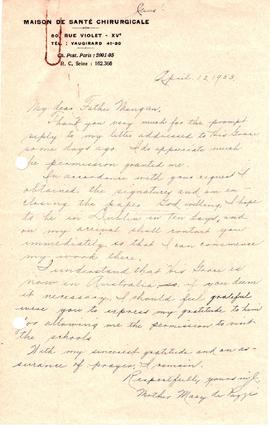 MAISON DE SANTÉ CHIRURGICALE
60, RUE VIOLET - XVe
TÉL. : VAUGIRARD 41-80
Ch. Post. Paris : 2001-95
R. C. Seine : 162.368
April 12 1953
My dear Father Mangan,
Thank you very much for the prompt
reply to my letter addressed to His Grace
some days ago. I do appreciate much
the permission granted me.
In accordance with your request I
obtained the signatures and am en-
closing the paper. God willing, I hope
to be in Dublin in ten days, and
on my arrival shall contact you
immediately so that I can commence
my work there.
I understand that his Grace is
now in Australia so, if you deem
it necessary, I should feel grateful
were you to express my gratitude to him
for allowing me the permission to visit
the schools
With my sincerest gratitude and an as-
surance of prayer, I remain,
Respectfully yours in J.
Mother Mary de